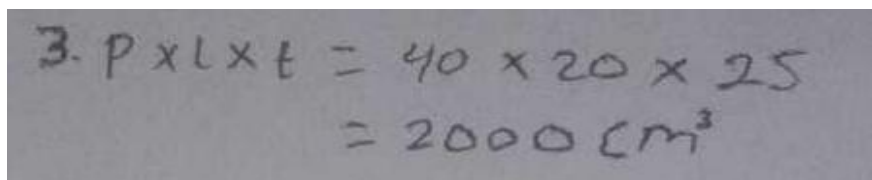 3. P x l x t = 40 x 20 x 25
= 2000 cm³